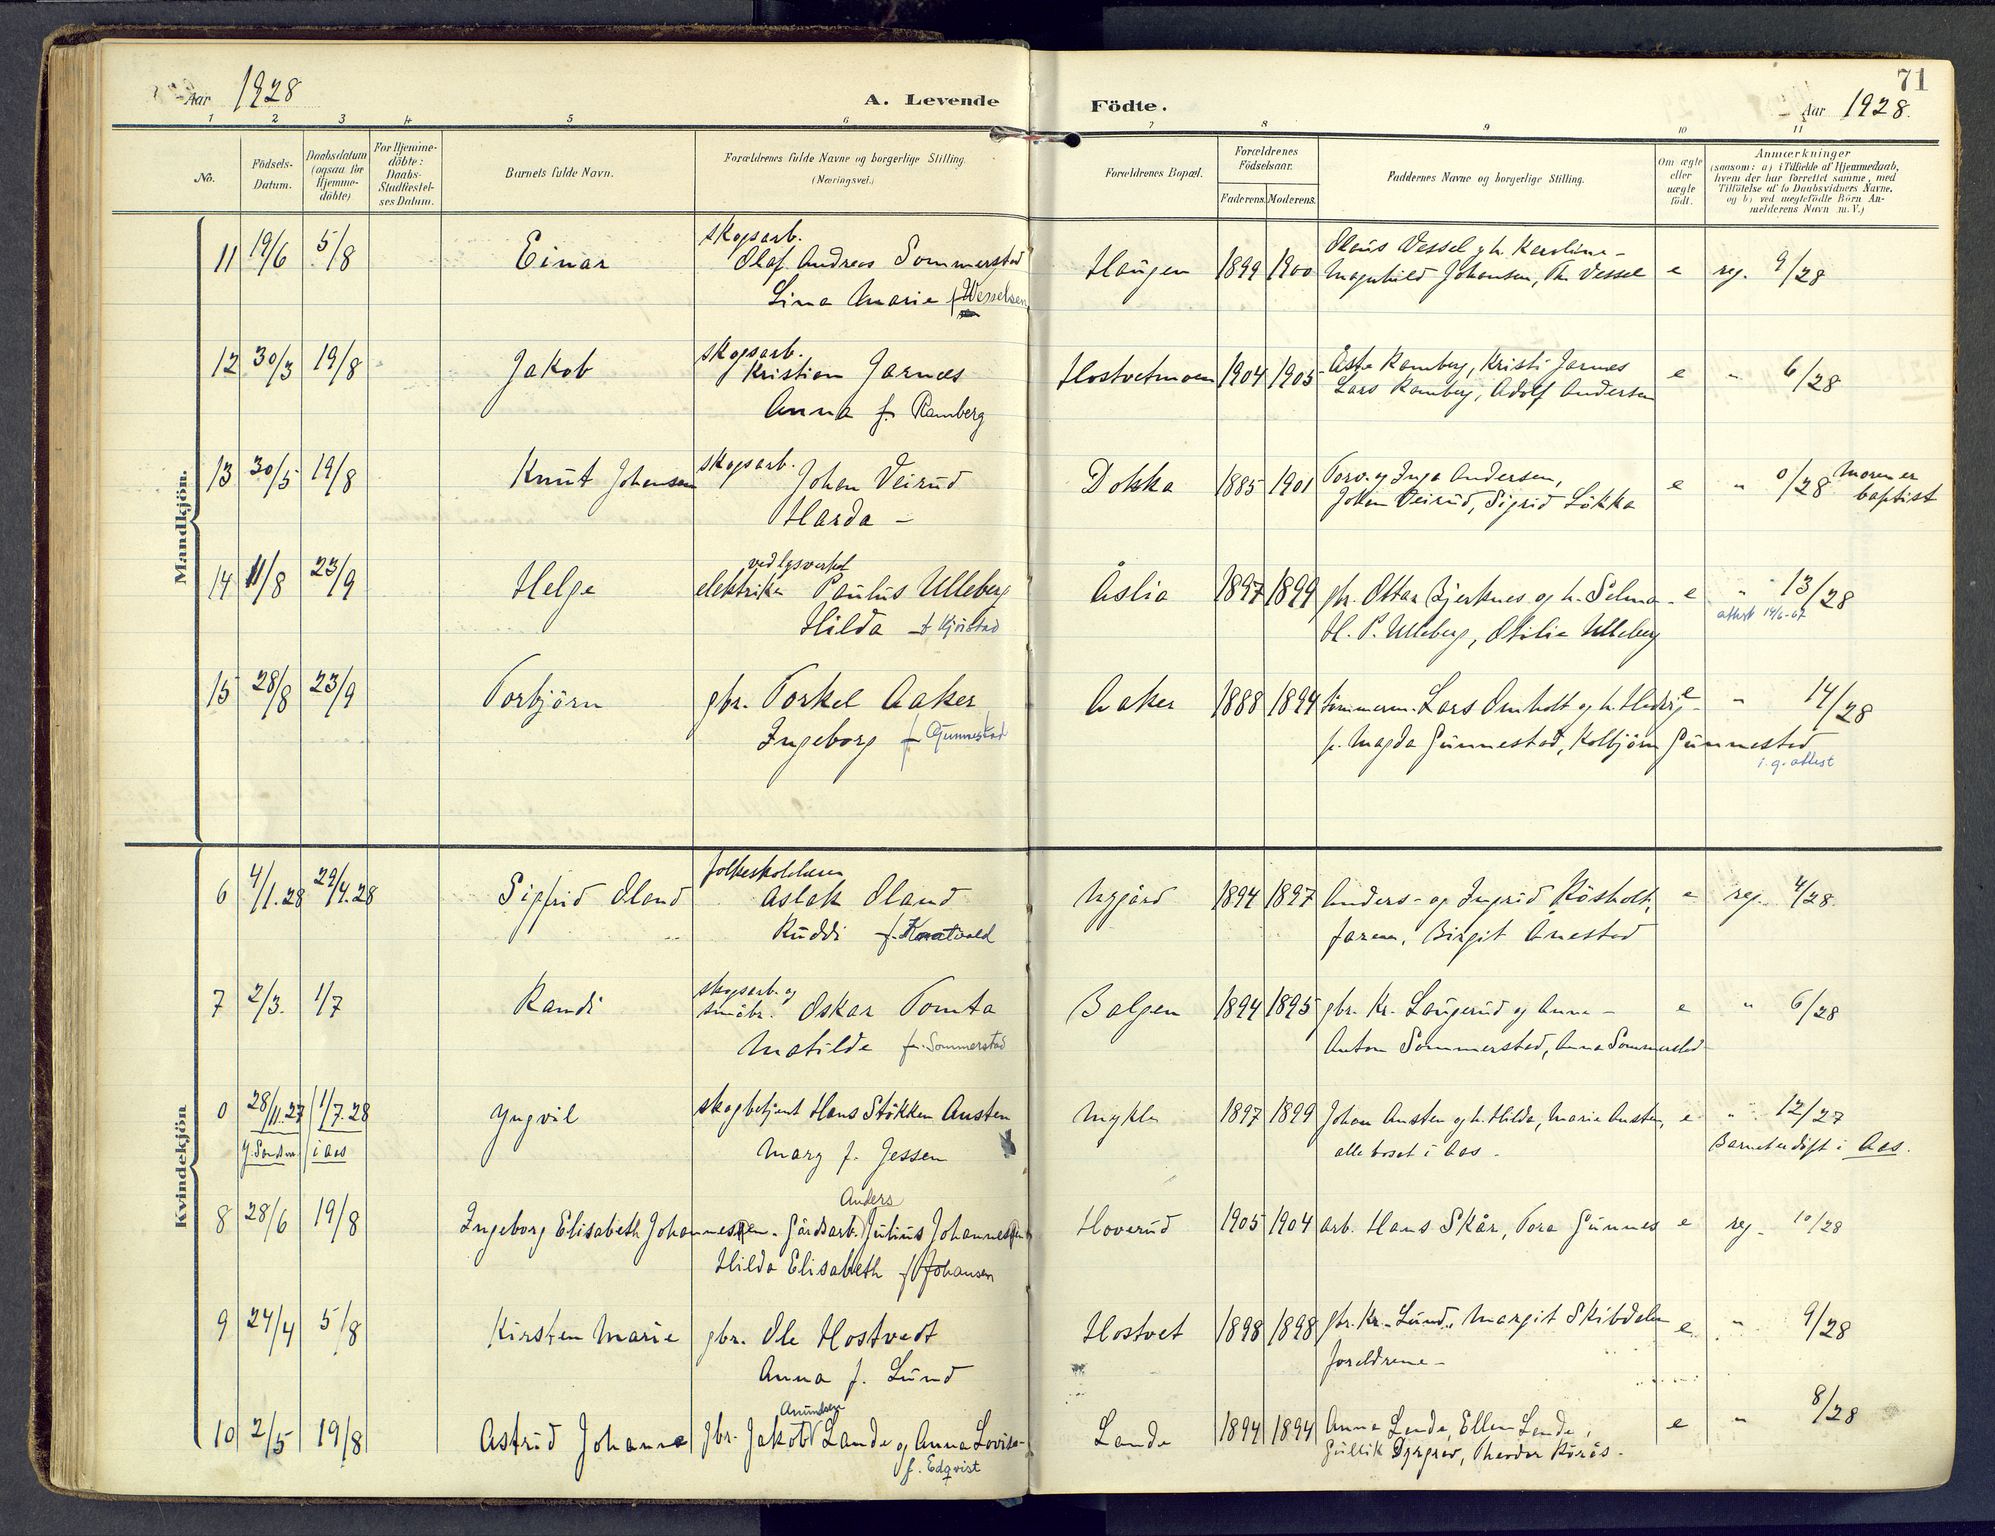 Aar 1928
A. Levende Födte.
71
Aar 1928.
1 2 3 4 5 6 7 8 9 10 11
No.
Födsels-Datum.
Daabsdatum (ogsaa for Hjemme-döbte)
For Hjemme-döbte: Daabs-Stadfæstel-ses Datum.
Barnets fulde Navn.
Forældrenes fulde Navne og borgerlige Stilling. (Næringsvei.)
Forældrenes Bopæl.
Forældrenes Födselsaar.
Faderens. Moderens.
Faddernes Navne og borgerlige Stilling.
Om ægte eller uægte födt.
Anmærkninger
(saasom: a) i Tilfælde af Hjemmedaab,
hvem der har forrettet samme, med
Tilföielse af to Daabsvidners Navne,
og b) ved uægtefödte Börn An-
melderens Navn m. V.)
Mandkjön.
11 19/6 5/8 Einar skogsarb. Olaf Andreas Sommerstad Haugen 1899 1900 Olaus Vessel og h. Karoline - e reg. 9/28
Lina Marie f. Wesselsen Magnhild Johansen, Th. Vessel
12 30/3 19/8 Jakob skogsarb. Kristian Jarnæs Hostvetmoen 1904 1905 Kristi Jarnes e " 6/28
Anna f. Ramberg Lars Ramberg, Adolf Andersen
13 30/5 19/8 Knut Johansen skogsarb. Johan Veirud Dokka 1885 1901 Torv. og Inga Andersen, e " 0/28 Moren er baptist
Harda - Johan Veirud, Sigrid Lökka
14 11/8 23/9 Helge elektriker ved lysverket Paulus Ulleberg Åslia 1897 1899 gbr. Ottar Bjerknes og h. Selma - e " 13/28
Hilda - f. Kjörstad H. P. Ulleberg, Otilie Ulleberg attest 14/6-67
15 28/8 23/9 Torbjörn gbr. Torkel Aaker Aaker 1888 1894 tömmerm. Lars Omholt og h. Hedvig - e " 14/28
Ingeborg f. Gunnestad fr. Magda Gunnestad, Kolbjörn Gunnestad
i.g. attest
Kvindekjön
6 4/1.28 29/4.28 Sigfrid Oland Aslak Oland Nygård 1894 1897 Anders - og Ingrid Kösholt, e reg. 4/28.
Ruddi f. Knatvold faren, Birgit Ånestad
7 2/3. 1/7 Randi skogsarb. og småbr. Oskar Tomta Bolgen 1894 1895 gbr. Kr. Laugerud og Anna - e " 6/28
Matilde f. Sommerstad Anton Sommerstad, Anna Sommerstad
0 28/11.27 1/7.28 Yngvil skogbetjent Hans Stökken Austen Mykle 1897 1899 Johan Austen og h. Hilda, Marie Austen, e " 12/27
i Aas Mary f. Jessen alle bosat i Aas. Barnet er döpt i Aas.
8 28/6 19/8 Ingeborg Elisabeth Johannessen. Gårdsarb. Anders Julius Johannessen Hoverud 1905 1904 arb. Hans Skår, Tora Gunnes e reg. 10/28
Hilda Elisabeth f. Johansen
9 24/4 5/8 Kirsten Marie gbr. Ole Hostvedt Hostvet 1898 1898 gbr. Kr. Lund, Margit Skibdalen e " 9/28
Anna f. Lund foreldrene -
10 2/5 19/8 Astrid Johanne gbr. Jakob Amundsen Lande og Anna Lovise - Lande 1894 1894 Anna Lande, Ellen Lande, e " 8/28
f. Edqvist Gullik Dyrgrav, Theodor Körås.